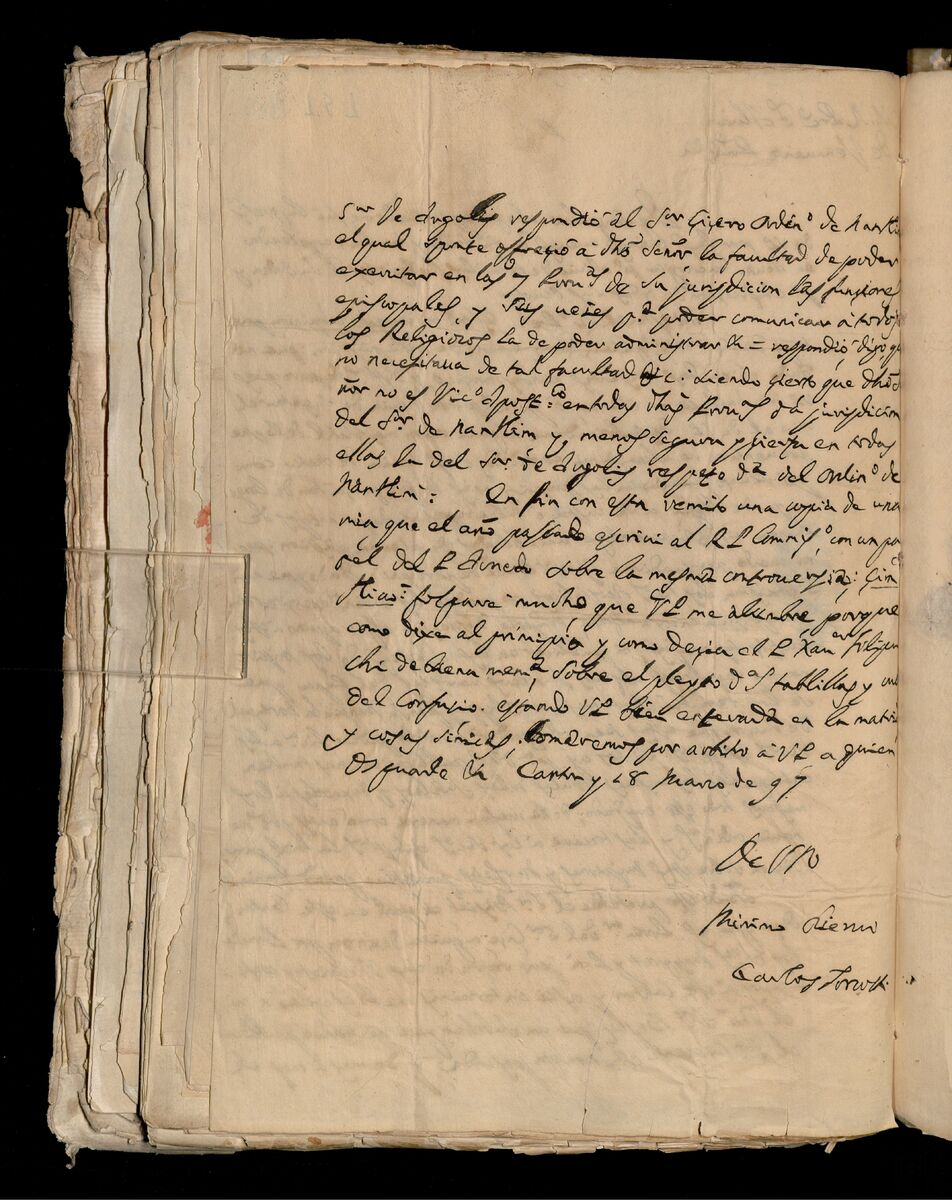 Sor de Argolis respondió al Sor Cicero Orden.o de Nankin
el qual sponte ofreció à dho Señor la facultad de poder
exercitar en las Prou.as de su jurisdicion las funciones
episcopales, y sus uezes p.a poder comunicar à todos
los Religiosos la de poder administrar &c = respondió digo q
no necesitaua de tal facultad &c: siendo cierto que dho Se
ñor no es Vic.o Apost.co en todas dhas Prou.as d la jurisdicion
del Sor de Nankim y menos segura y cierta en todas
ellas la del Sor de Argolis respeto d.a del Ordin.o de
Nankin: En fin con esta remito una copia de una
mia que el año passado escriui al R P Comiss.o con un pa
pel del P sobre la mesma controuersia:
mucho que VP me alumbre, porque
como dixe al principio y como dezia el P Xan Filipu
chi de buena mem.a sobre el pleyto d as tablillas y
del Confusio. estando VP bien enterada en la materia
y cosas sinicas, tomaremos por arbitro à VP, a quien
Ds guarde &c Canton y 18 Marzo de 97
De VP
Minimo Sieruo
Carlos Turcotti